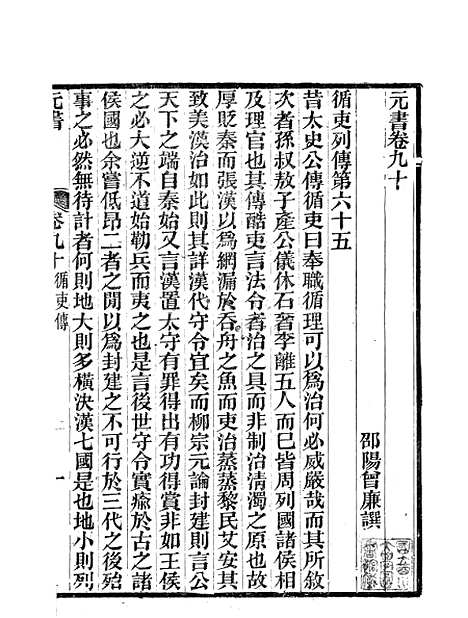 元書卷九十
邵陽曾廉譔
循吏列傳第六十五
昔太史公傳循吏曰奉職循理可以爲治何必威嚴哉而其所敘
次者孫叔敖子產公儀休石奢李離五人而已皆周列國諸侯相
及理官也其傳酷吏言法令者治之具而非制治淸濁之原也故
厚貶秦而張漢以爲網漏於吞舟之魚而吏治蒸蒸黎民艾安其
致美漢治如此則其詳漢代守令宜矣而柳宗元論封建則言公
天下之端自秦始又言漢置太守有罪得出有功得賞非如王侯
之必大逆不道始勒兵而夷之也是言後世守令實瘉於古之諸
侯國也余嘗低昂二者之閒以爲封建之不可行於三代之後殆
事之必然無待計者何則地大則多橫決漢七國是也地小則列
元書
卷九十 循吏傳
一